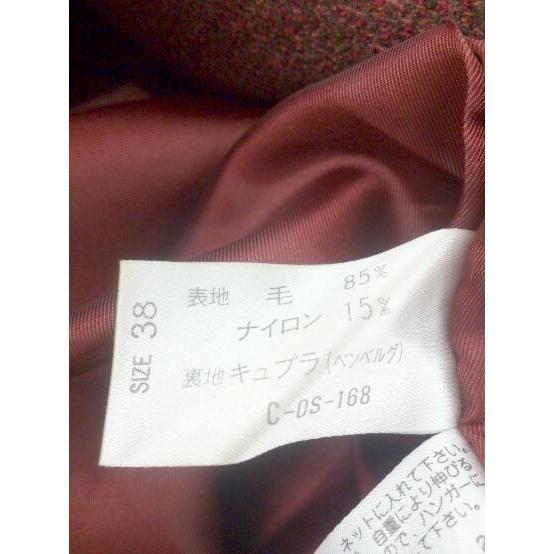 SIZE 38
表地 毛 85%
ナイロン 15%
裏地 キュプラ(ベンベルグ)
C-DS-168
ネットに入れて下さい。
自重により伸びる
ので、ハンガーに
て下さい。